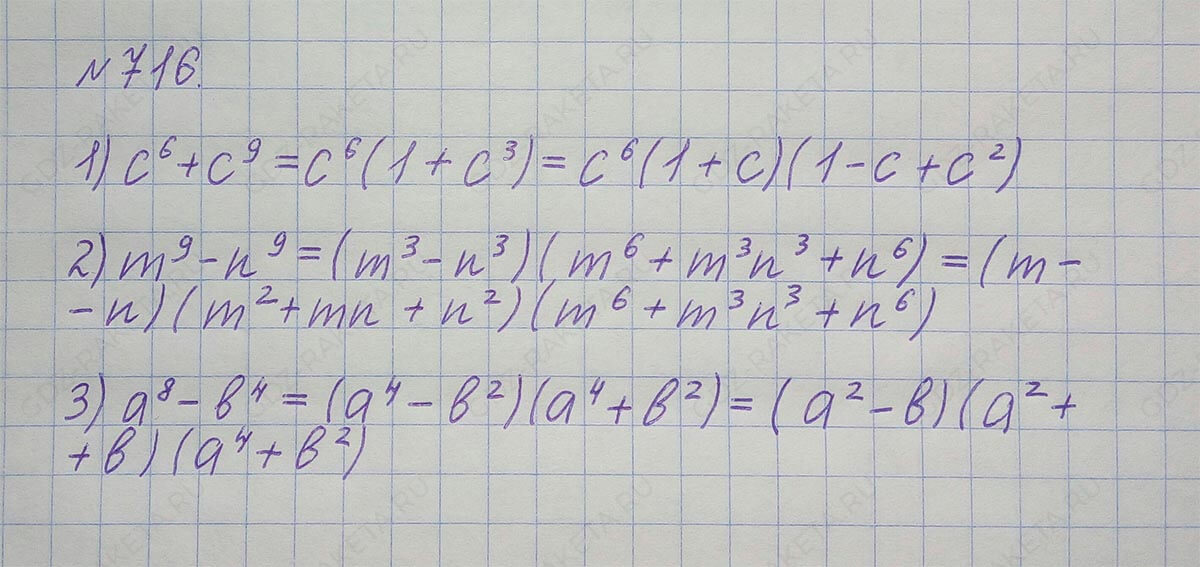 №716.
1) c⁶+c⁹=c⁶(1+c³)=c⁶(1+c)(1-c+c²)
2) m⁹-n⁹=(m³-n³)(m⁶+m³n³+n⁶)=(m-
-n)(m²+mn+n²)(m⁶+m³n³+n⁶)
3) a⁸-b⁴=(a⁴-b²)(a⁴+b²)=(a²-b)(a²+
+b)(a⁴+b²)
GDZ-RAKETA.RU